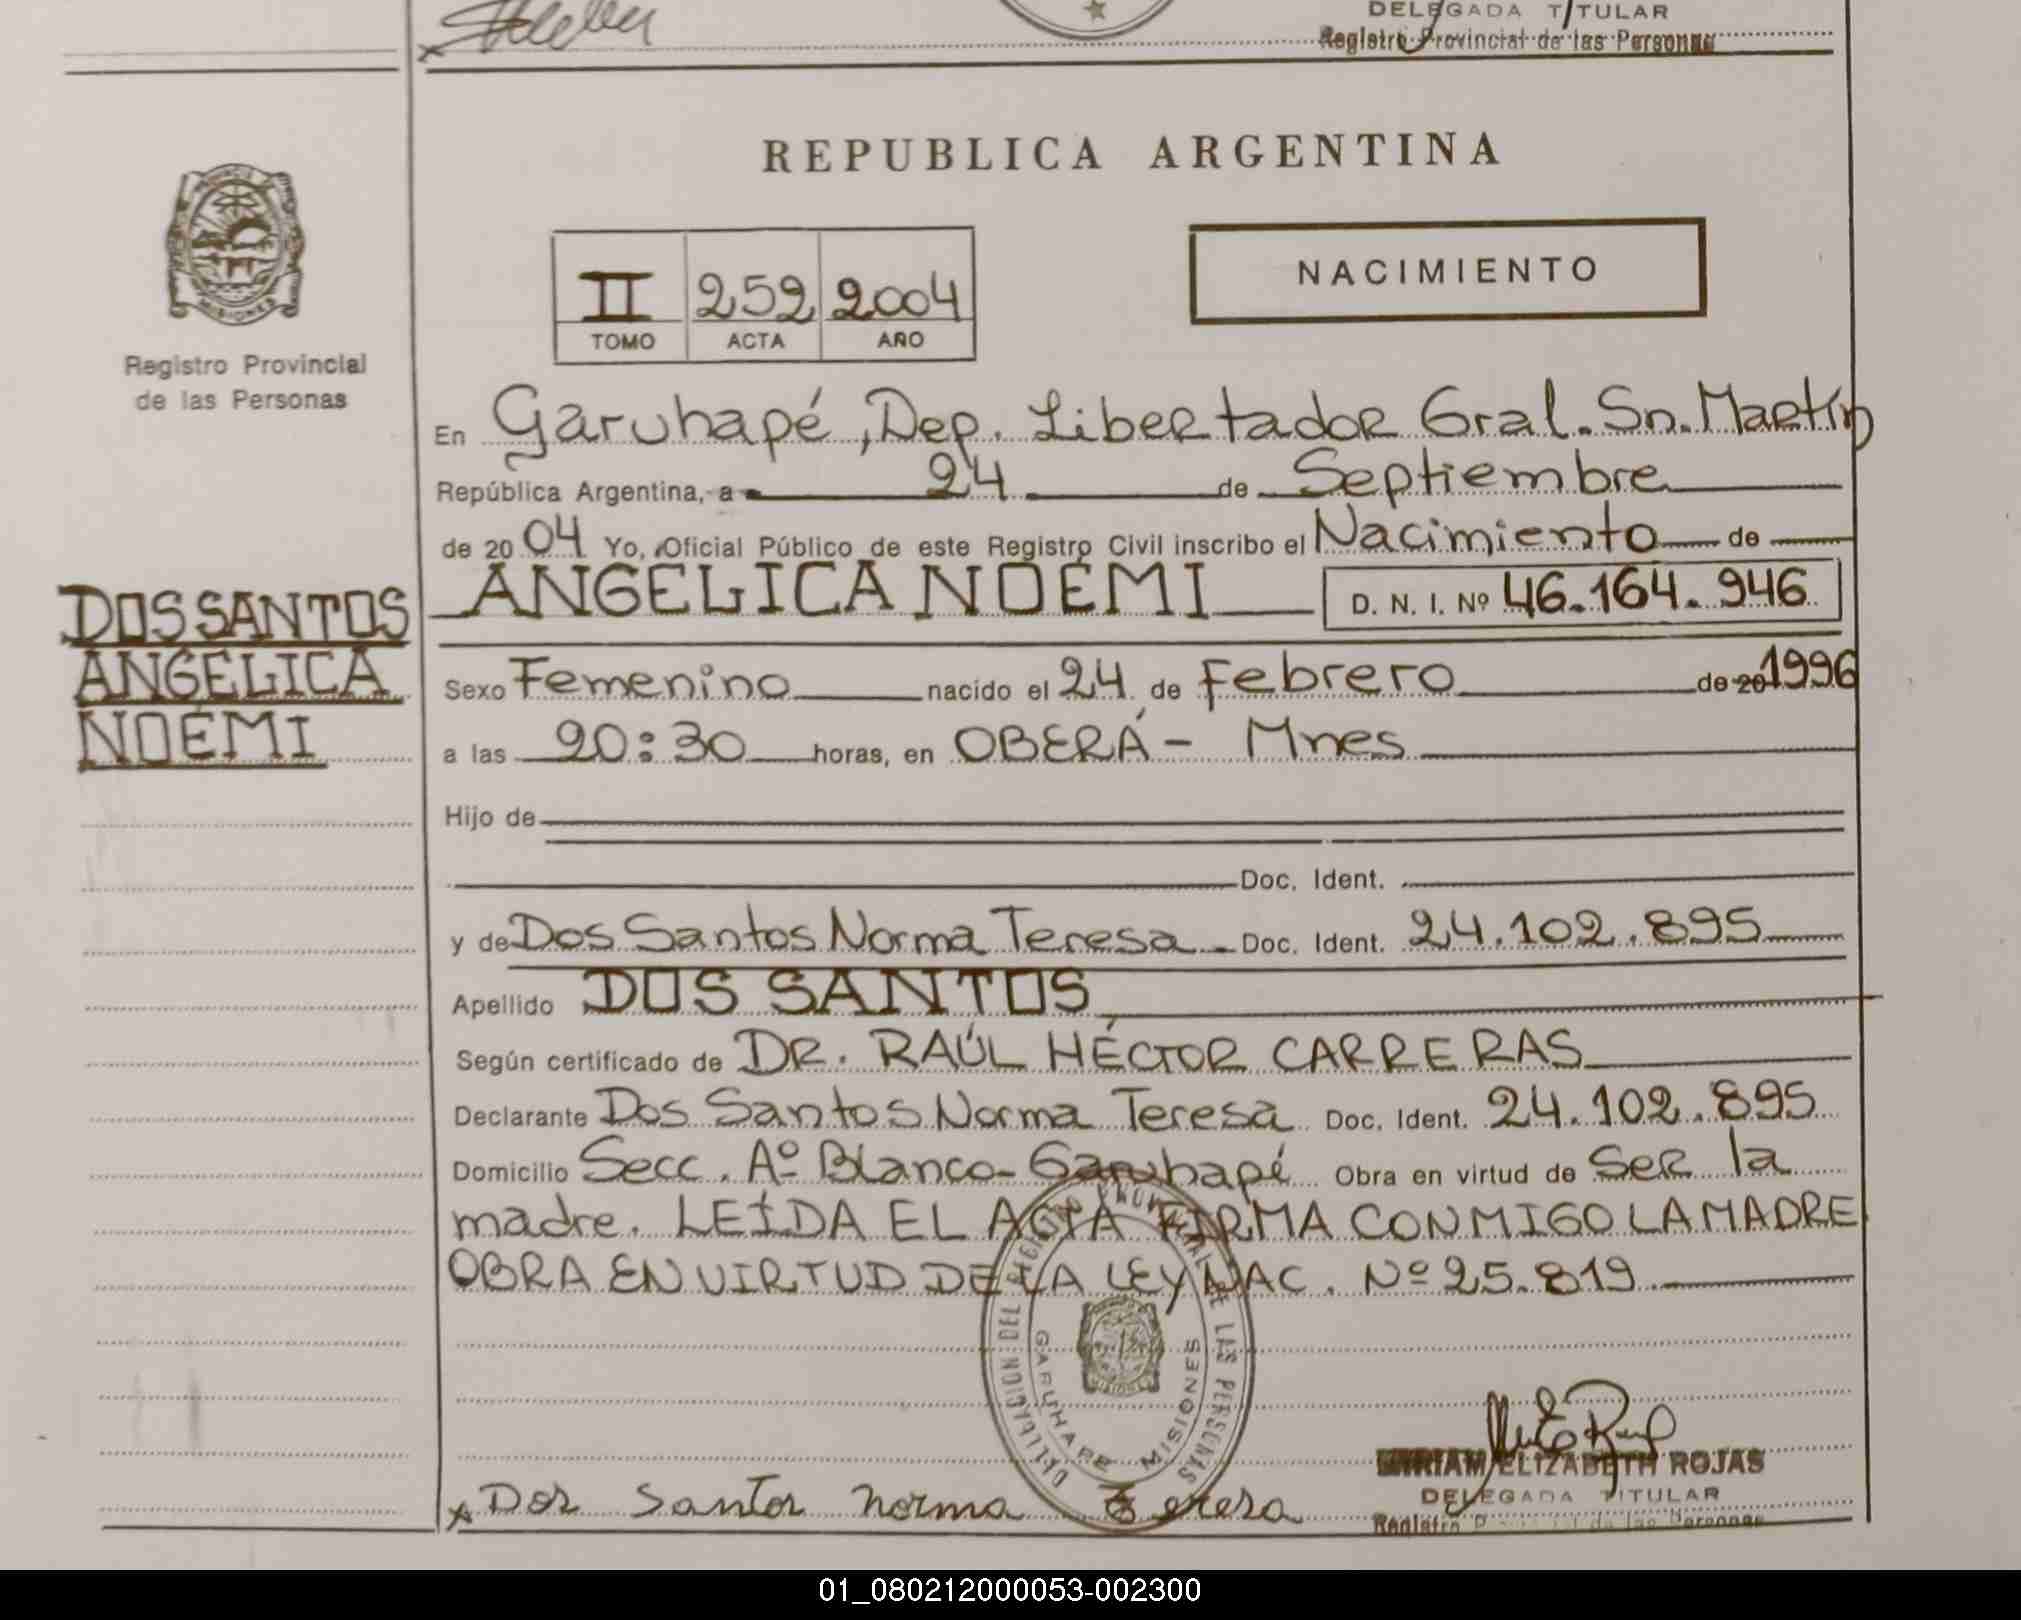 DELEGADA TITULAR
Registro Provincial de las Personas
REPUBLICA ARGENTINA
MISIONES
II 252 2004
TOMO ACTA AÑO
NACIMIENTO
Registro Provincial
de las Personas
En Garuhapé, Dep. Libertador Gral. Sn. Martín
República Argentina, a 24 de Septiembre
de 2004 Yo, Oficial Público de este Registro Civil inscribo el Nacimiento de
ANGÉLICA NOEMÍ D. N. I. Nº 46.164.946
DOS SANTOS
ANGÉLICA
NOEMÍ
Sexo Femenino nacido el 24 de Febrero de 20 1996
a las 20:30 horas, en OBERÁ - Mnes
Hijo de
Doc. Ident.
y de Dos Santos Norma Teresa - Doc. Ident. 24.102.895
Apellido DOS SANTOS
Según certificado de DR. RAÚL HÉCTOR CARRERAS
Declarante Dos Santos Norma Teresa Doc. Ident. 24.102.895
Domicilio Secc. Aº Blanco - Garuhapé Obra en virtud de Ser la
madre. LEÍDA EL ACTA FIRMA CONMIGO LA MADRE
OBRA EN VIRTUD DE LA LEY NAC. Nº 25.819
DELEGACION DEL REGISTRO PROVINCIAL DE LAS PERSONAS
GARUHAPE MISIONES
MIRIAM ELIZABETH ROJAS
DELEGADA TITULAR
x Dos Santos Norma Teresa
01_080212000053-002300